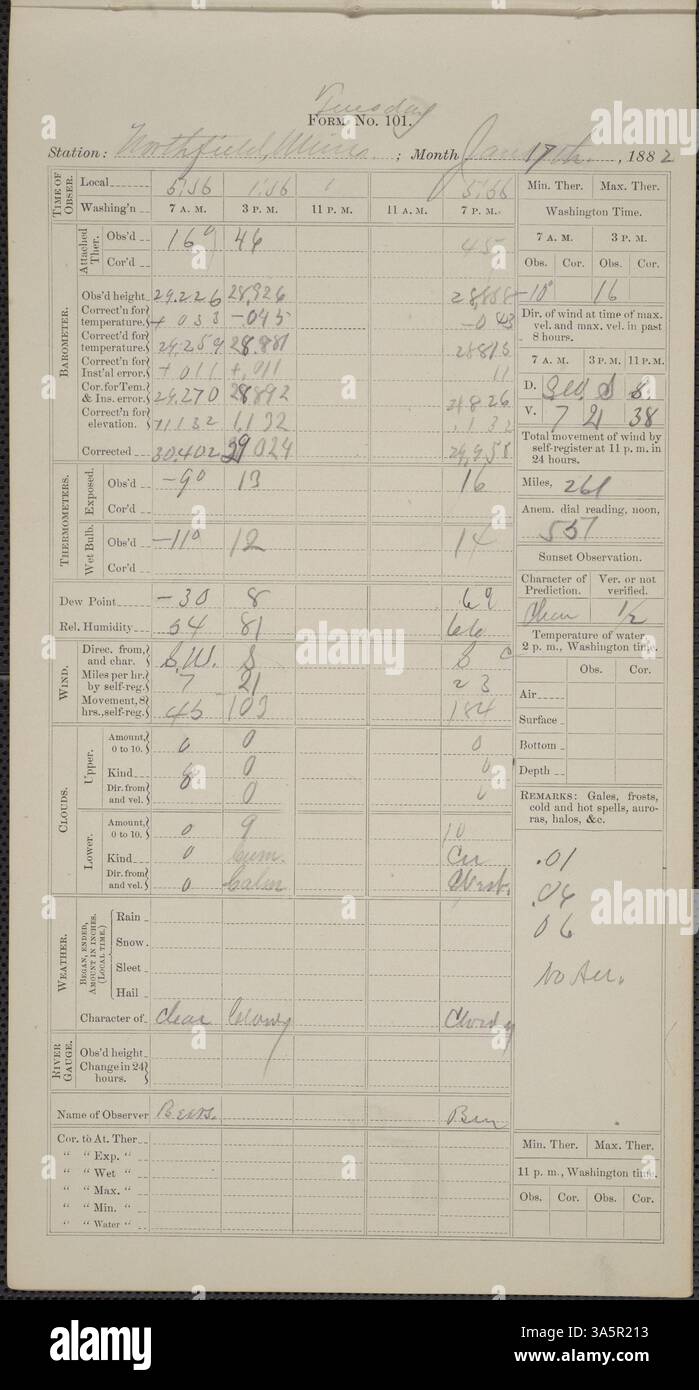 Tuesday
FORM No. 101.
Station: Northfield, Minn. ; Month Jan 17th. , 1882
TIME OF OBSER.
Local 5.56 1.56 5.56
Washing'n 7 A. M. 3 P. M. 11 P. M. 11 A. M. 7 P. M.
Attached Ther.
Obs'd 16° 46 45
Cor'd
BAROMETER.
Obs'd height 29.226 28.926 28.858
Correct'n for temperature. + 033 -045 -043
Correct'd for temperature. 29.259 28.881 28815
Correct'n for Inst'al error. + 011 +.011 11
Cor. for Tem. & Ins. error. 29.270 28892 28 8 26
Correct'n for elevation. +1.132 1.132 1.132
Corrected 30.402 29 024 29.958
THERMOMETERS.
Exposed.
Obs'd -9° 13 16
Cor'd
Wet Bulb.
Obs'd -11° 12 14
Cor'd
Dew Point -30 8 69
Rel. Humidity 54 81 66
WIND.
Direc. from, and char. S.W. S S
Miles per hr. by self-reg. 7 21 23
Movement, 8 hrs., self-reg. 45 103 184
CLOUDS.
Upper.
Amount, 0 to 10. 0 0 0
Kind 0 0 0
Dir. from and vel. 0 0
Lower.
Amount, 0 to 10. 0 9 10
Kind 0 Cum. Cu
Dir. from and vel. 0 Calm West.
WEATHER.
BEGAN, ENDED, AMOUNT IN INCHES. (LOCAL TIME.)
Rain
Snow
Sleet
Hail
Character of Clear Cloudy Cloudy
RIVER GAUGE.
Obs'd height
Change in 24 hours.
Name of Observer
Cor. to At. Ther
" " Exp. "
" " Wet "
" " Max. "
" " Min. "
" " Water "
Min. Ther. Max. Ther.
Washington Time.
7 A. M. 3 P. M.
Obs. Cor. Obs. Cor.
-10° 16
Dir. of wind at time of max. vel. and max. vel. in past 8 hours.
7 A. M. 3 P. M. 11 P. M.
D. S.W. S S.
V. 7 21 38
Total movement of wind by self-register at 11 p. m. in 24 hours.
Miles, 261
Anem. dial reading, noon,
557
Sunset Observation.
Character of Prediction. Ver. or not verified.
Clear 1/2
Temperature of water, 2 p. m., Washington time.
Obs. Cor.
Air
Surface
Bottom
Depth
REMARKS: Gales, frosts, cold and hot spells, auroras, halos, &c.
.01
.04
06
No Aur.
Min. Ther. Max. Ther.
11 p. m., Washington time.
Obs. Cor. Obs. Cor.
alamy
Image ID: 3A5R213
www.alamy.com